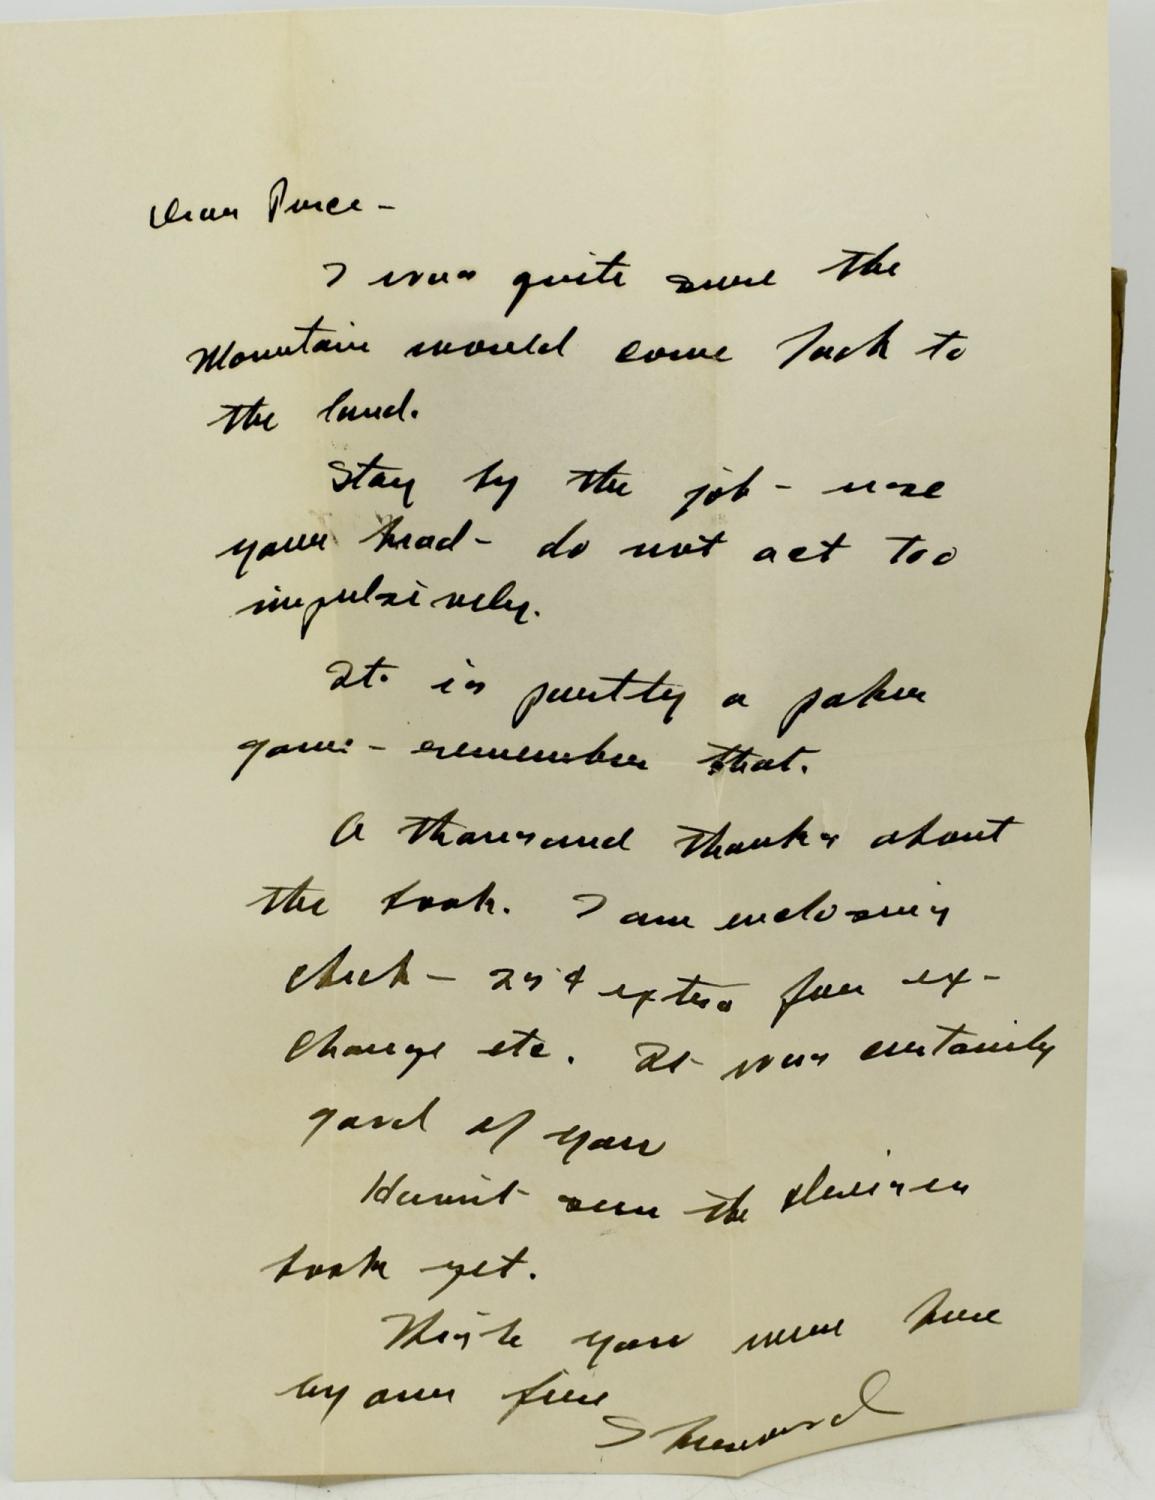 Dear Pierce -
I was quite sure the
Mountain would come back to
the land.
Stay by the job - use
your head - do not act too
impulsively.
It is partly a poker
game - remember that.
A thousand thanks about
the book. I am enclosing
check - 25¢ extra for ex-
change etc. It was certainly
good of you
Havnt seen the
book yet.
Wish you were here
by our fire
Sherwood